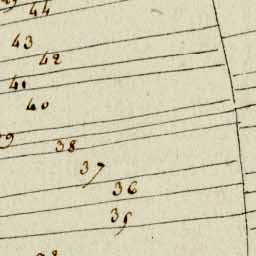 44
43
42
41
40
38
37
36
35